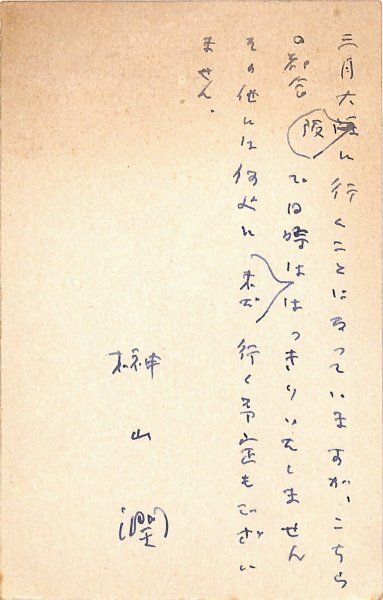 三月大阪に行くことになっていますが、こちら
の都合で日時は未だはっきりいたしません
その他には何処に行く予定もござい
ません。
榊山潤